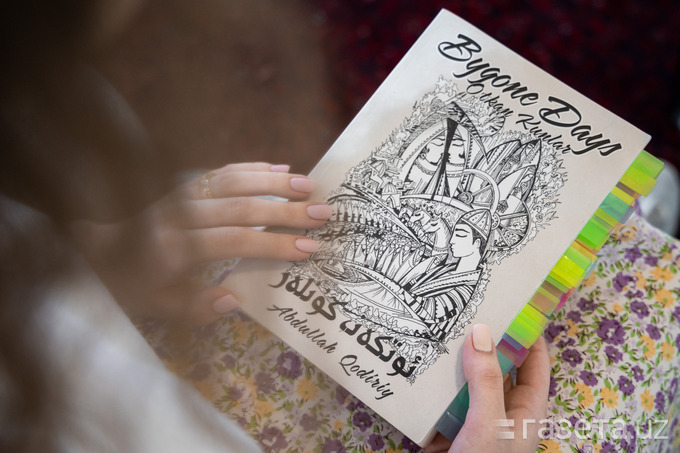 Bygone Days
O'tkan Kunlar
ئوتكەن كونلەر
Abdullah Qodiriy
газета.uz